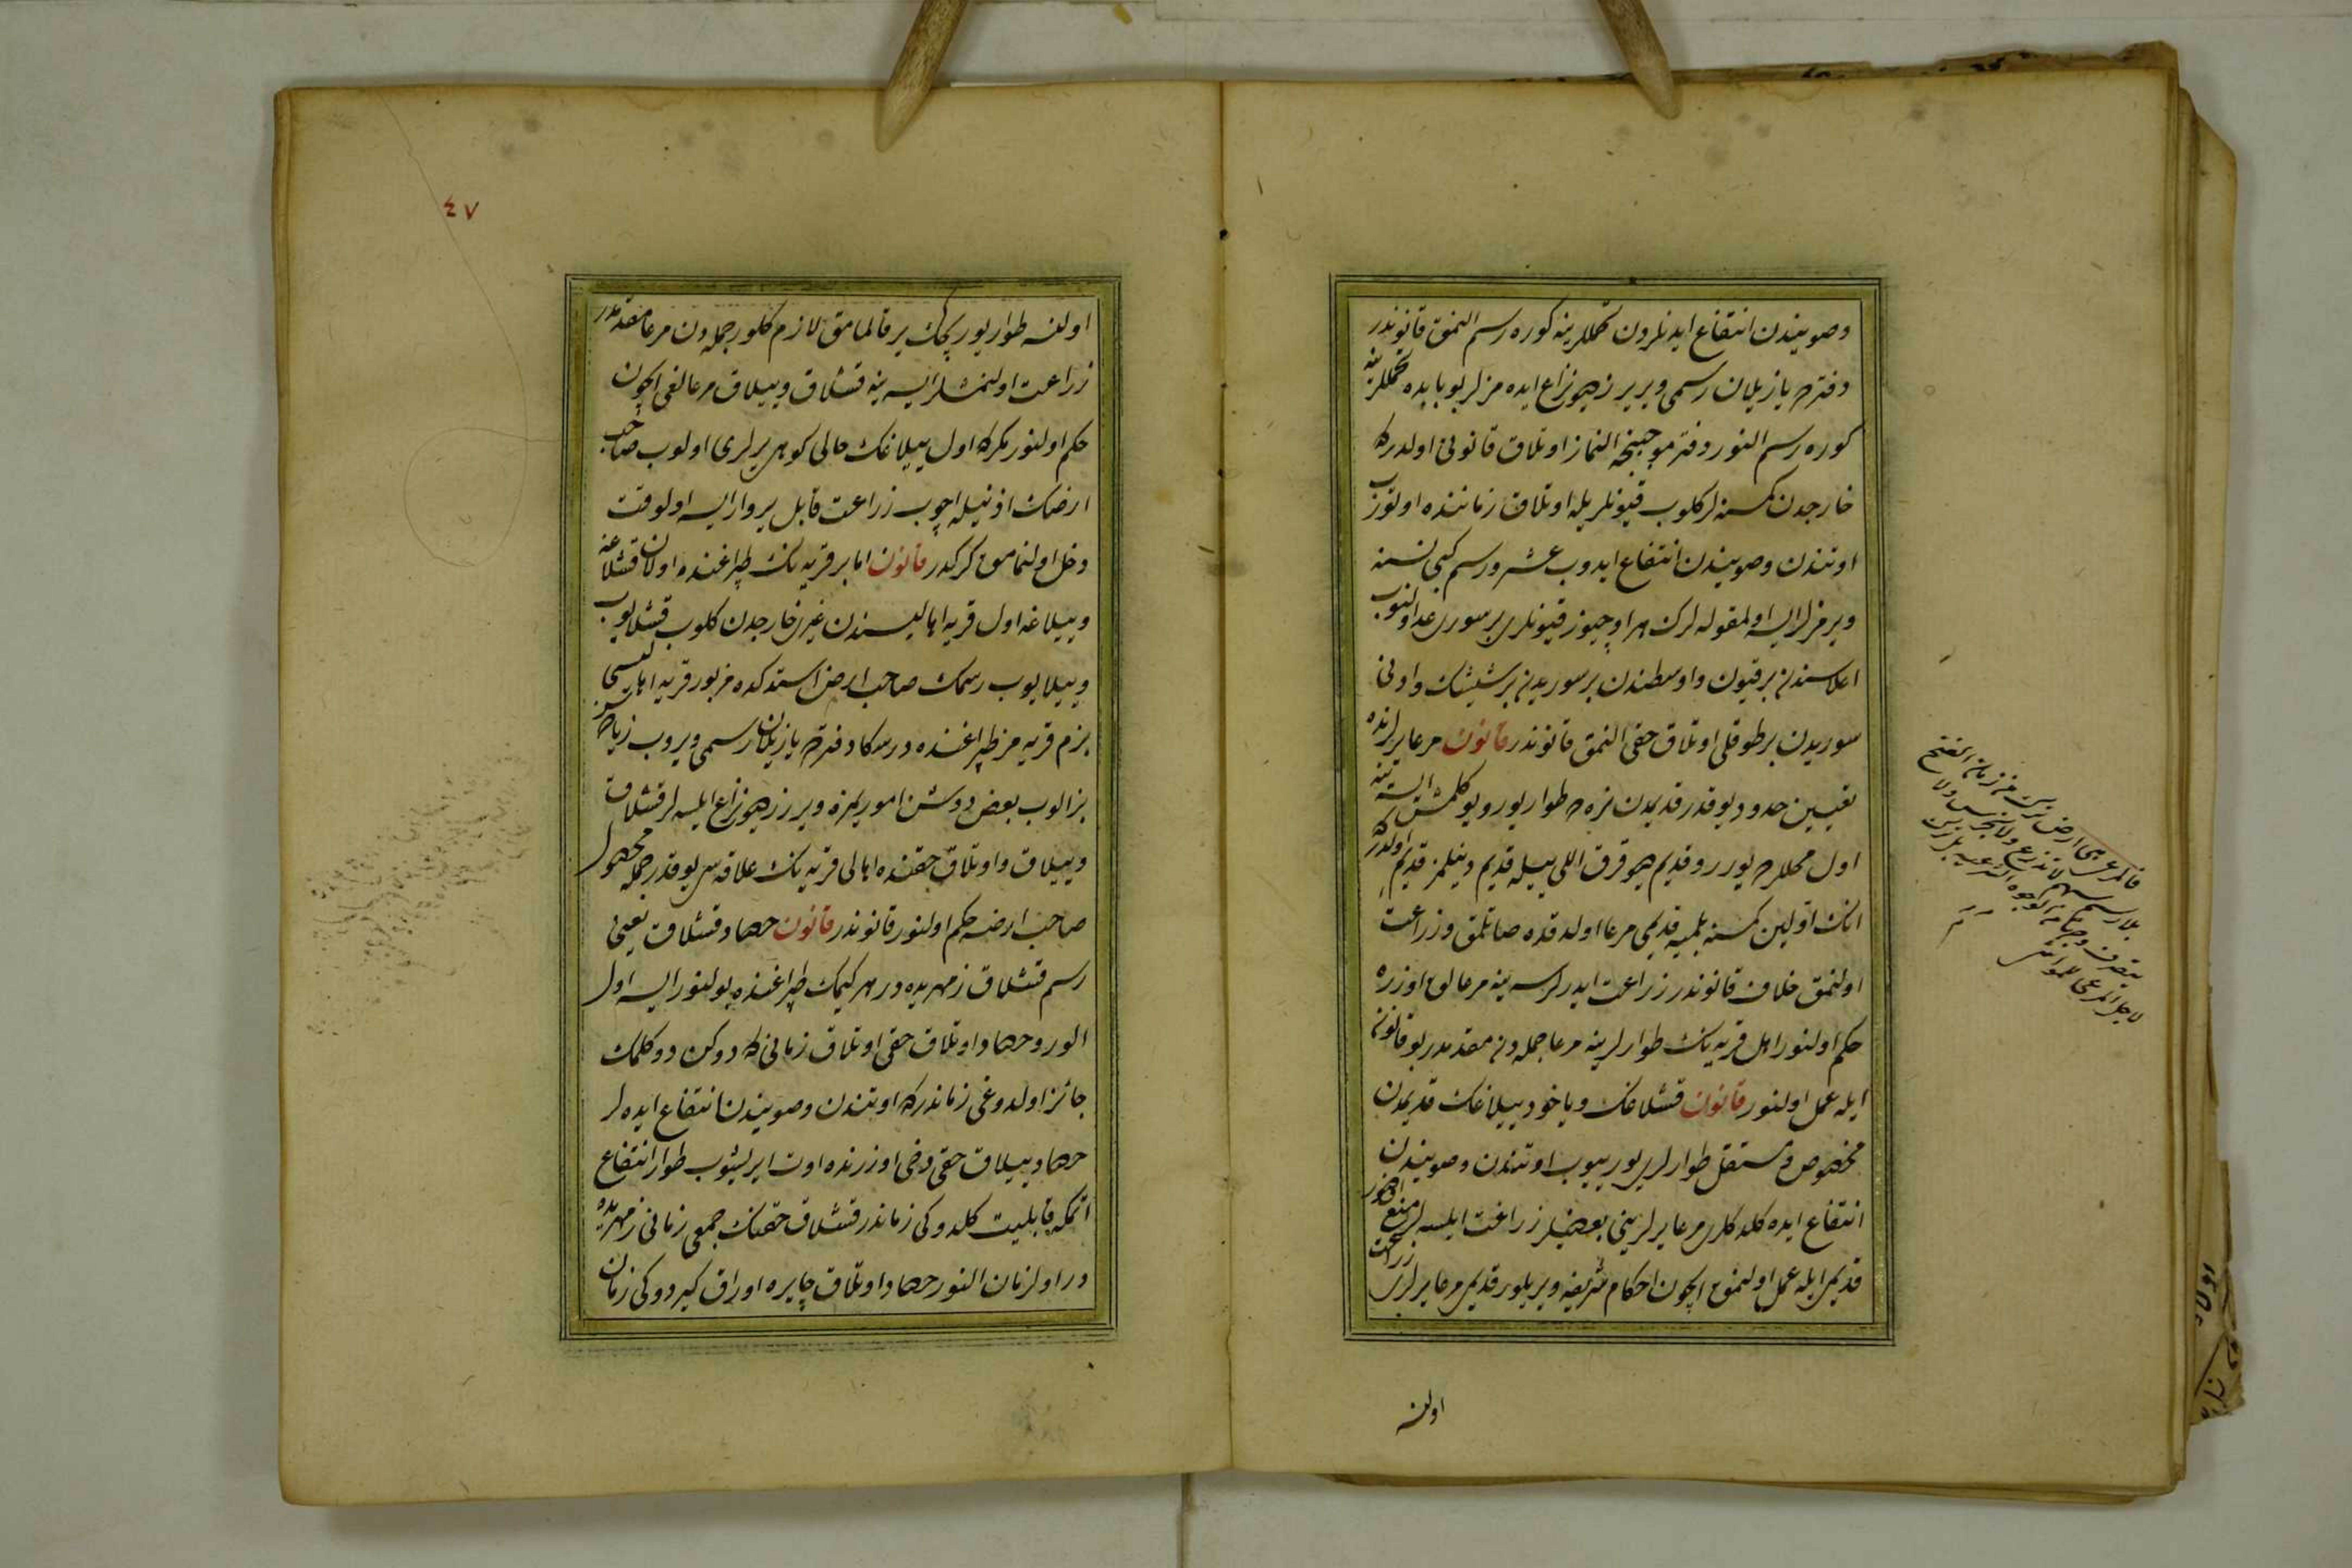 وصویندن انتفاع ایدنلردن تحمللرینه کوره رسم النمق قانوندر
دفترده یازیلان رسمی ویریرز دیو نزاع ایده مزلر بو بابده تحمللرینه
کوره رسم النور دفتر موجبنجه النماز اوتلاق قانونی اولدرکه
خارجدن کمسنه لر کلوب قیونلریله اوتلاق زماننده اولتورب
اوتندن وصویندن انتفاع ایدوب عشر ورسم کبی نسنه
ویرمزلر ایسه اولمقوله لرک هر اوچیوز قیونلری بر سوری عد اولنوب
اعلاسندن بر قیون واوسطندن بر سوریدن بر شیشک وادنی
سوریدن بر طوقلی اوتلاق حقی النمق قانوندر قانون مرعا یرلرنده
تعیین حدود یوقدر قدیمدن نره ده طوار یوریو کلمش ایسه ینه
اول محللرده یورر وقدیم دیو قرق اللی ییله قدیم دینلمز قدیم اولدرکه
انک اولین کمسنه بلمیه قدیمی مرعا اولدقده صاتلمق وزراعت
اولنمق خلاف قانوندر زراعت ایدرلرسه ینه مرعالق اوزره
حکم اولنور اهل قریه نک طوارلرینه مرعا جمله دن مقدمدر بو قانون
ایله عمل اولنور قانون قشلاغک ویاخود ییلاغک قدیمدن
مخصوص ومستقل طوارلری یورییوب اوتندن وصویندن
انتفاع ایده کلدکلری مرعا یرلرینی بعضیلر زراعت ایلسه لر منع اولنور
قدیمی ایله عمل اولنمق ایچون احکام شریفه ویریلور قدیمی مرعا یرلری زراعت
اولنسه
اولنسه طوار یوریجک یر قالمامق لازم کلور جمله دن مرعا مقدمدر
زراعت اولنمشلر ایسه ینه قشلاق وییلاق مرعالغی ایچون
حکم اولنور مکرکه اول ییلاغک حالی کوهی یرلری اولوب صاحب
ارضک اذنیله اچوب زراعت قابل یر وار ایسه اولوقت
دخل اولنمامق کرکدر قانون اما بر قریه نک طپراغنده اولان قشلاغه
وییلاغه اول قریه اهالیسندن غیری خارجدن کلوب قشلایوب
وییلایوب رسمک صاحب ارض استدکده مزبور قریه اهالیسی
بزم قریه مز طپراغنده در سکا دفترده یازیلان رسمی ویروب زیاده سن
بز الوب بعض دوشن اموریمزه ویررز دیو نزاع ایلسه لر قشلاق
وییلاق واوتلاق حقنده اهالی قریه نک علاقه سی یوقدر جمله محصول
صاحب ارضه حکم اولنور قانوندر قانون حصاد قشلاق یعنی
رسم قشلاق زمهریده در هر کیمک طپراغنده بولنور ایسه اول
الور وحصاد اوتلاق حقی اوتلاق زمانی که دوکن دوکلمک
جائز اولدوغی زماندرکه اوتندن وصویندن انتفاع ایده لر
حصاد ییلاق حقی دخی اوزرنده اوت ایریشوب طوار انتفاع
اتمکه قابلیت کلدوکی زماندر قشلاق حقنک جمعی زمانی زمهریده
در اول زمان النور حصاد اوتلاق چایره اوراق کیردوکی زمان
٤٧